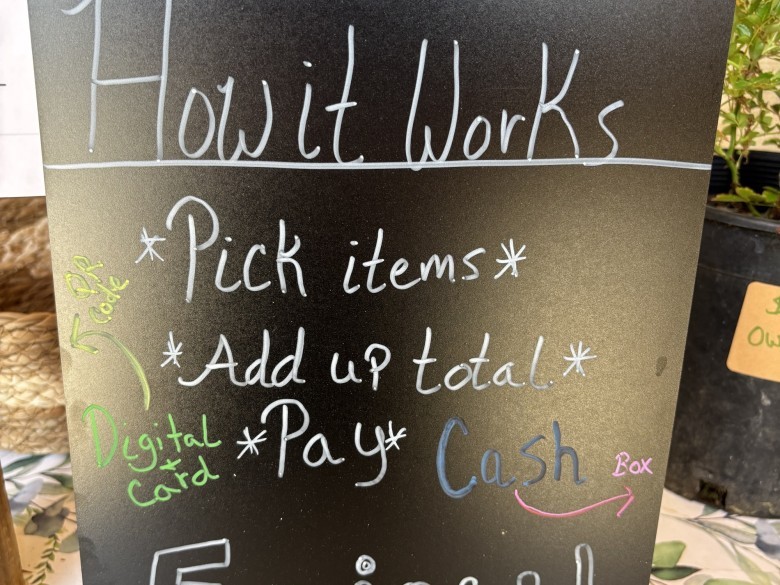 How it Works
*Pick items*
QR
code
*Add up total*
Digital
+
card
*Pay*
Cash
Box